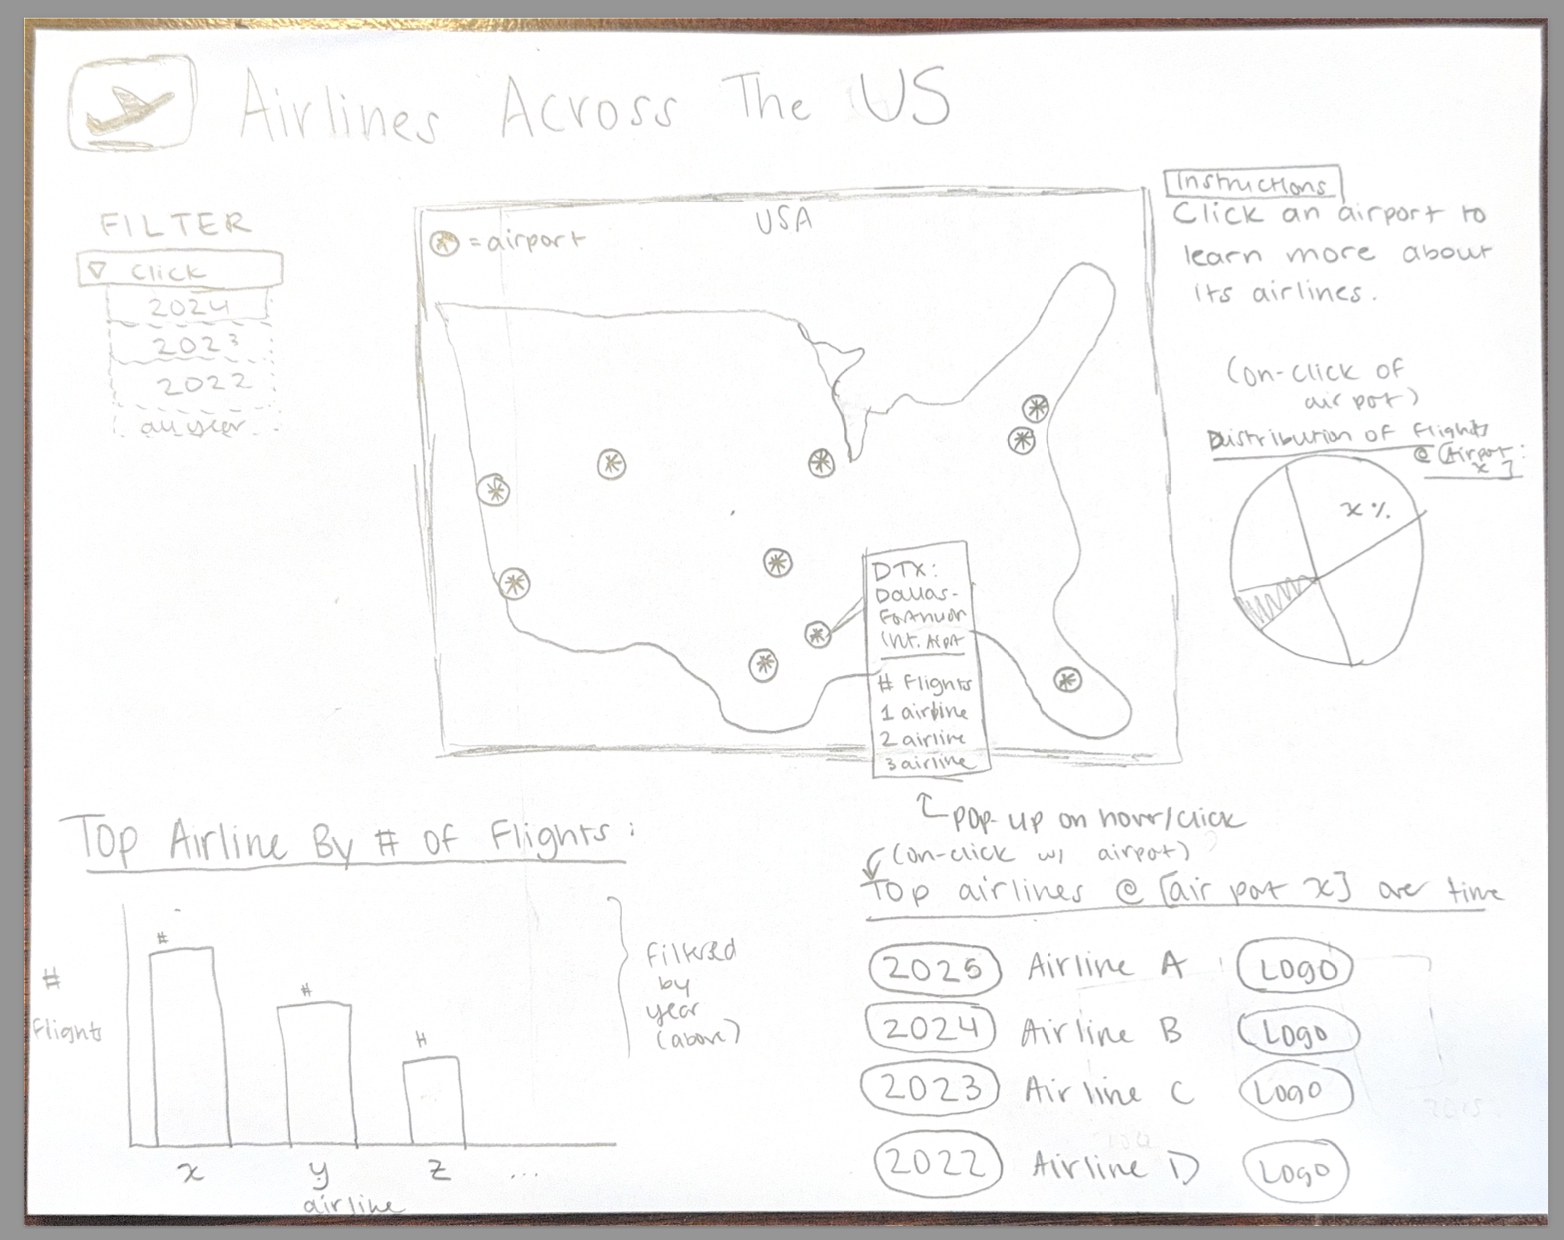 Airlines Across The US
FILTER
Click
2024
2023
2022
all year
USA
= airport
Instructions
Click an airport to
learn more about
its airlines.
(on-click of
airport)
Distribution of flights
@ [Airport:
x]
x %
DTX:
Dallas-
Int. Arpt
# Flights
1 airline
2 airline
3 airline
pop-up on hover/click
Top Airline By # of Flights:
#
Flights
#
#
#
x y z ...
airline
filtered
by
year
(above)
(on-click w/ airport)
Top airlines @ [airport x] over time
2025 Airline A Logo
2024 Airline B Logo
2023 Airline C Logo
2022 Airline D Logo